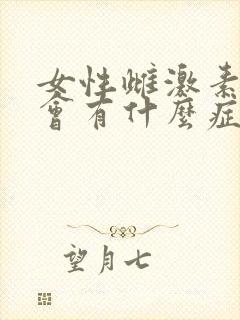 女性雌激素
會有什麼症
望月七